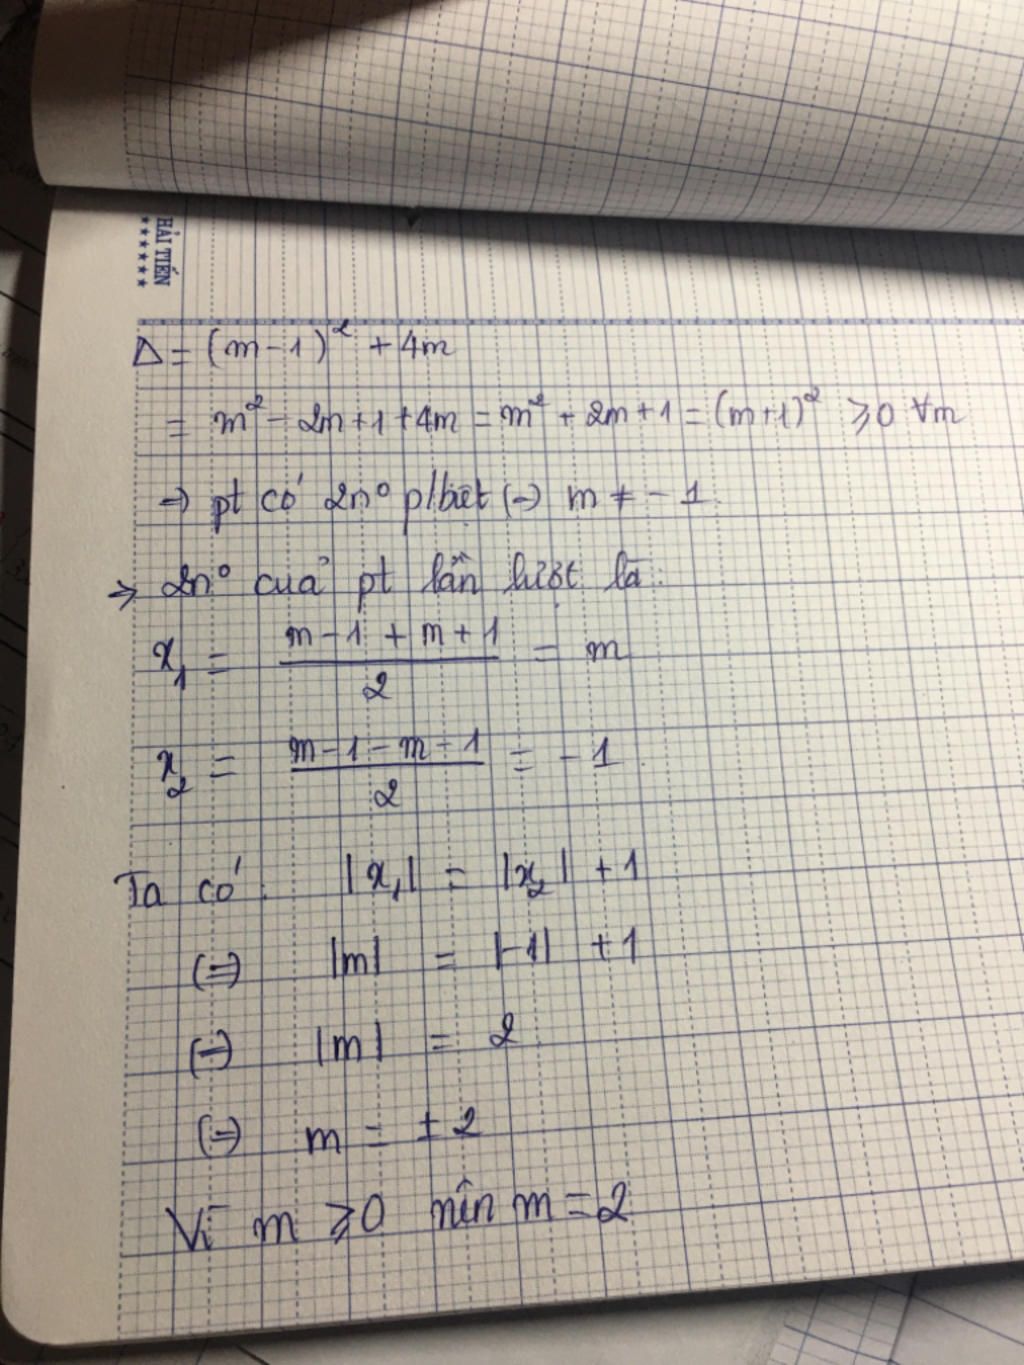 HẢI TIẾN
★★★★★★
Δ = (m-1)² + 4m
= m² - 2m+1+4m = m² + 2m+1 = (m+1)² ⩾0 ∀m
=> pt có 2n° p/biệt (=) m ≠ -1
=> 2n° của pt lần lượt là:
x₁ = (m-1+m+1)/2 = m
x₂ = (m-1-m-1)/2 = -1
Ta có: |x₁| = |x₂| + 1
(=) |m| = |-1| + 1
(=) |m| = 2
(=) m = ±2
Vì m ⩾0 nên m = 2